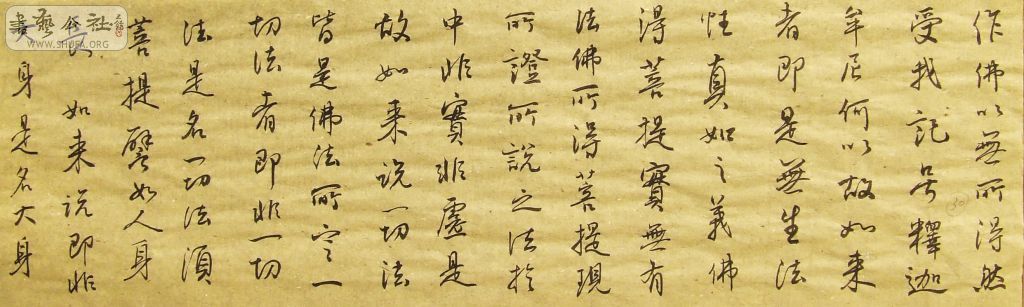 作佛以無所得然
受我記号釋迦
牟尼何以故如来
者即是無生法
性真如之義佛
得菩提實無有
法佛所得菩提現
所證所說之法於
中非實非虛是
故如来说一切法
皆是佛法所言一
切法者即非一切
法是名一切法須
菩提譬如人身
長 如来说即非
大身是名大身
WWW.SHUFA.ORG